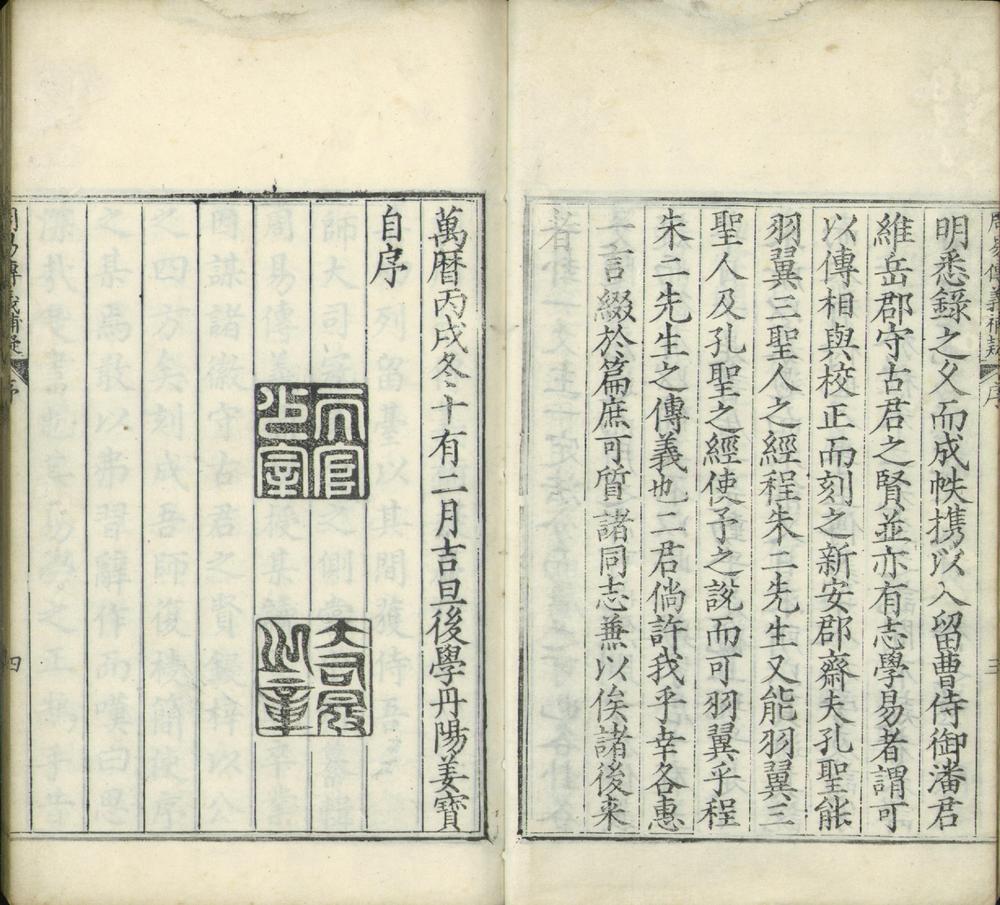 周易傳義補疑 序
三
明悉錄之父而成帙携以入留曹侍御潘君
維岳郡守古君之賢並亦有志學易者謂可
以傳相與校正而刻之新安郡齋夫孔聖能
羽翼三聖人之經程朱二先生又能羽翼三
聖人及孔聖之經使予之說而可羽翼乎程
朱二先生之傳義也二君倘許我乎幸各惠
一言綴於篇庶可質諸同志兼以俟諸後來
者
萬曆丙戌冬十有二月吉旦後學丹陽姜寶
自序
天官
之章
大司寇
之章
周易傳義補疑 序
四